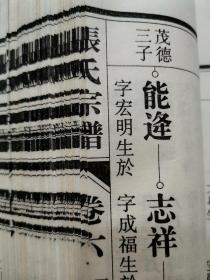 茂德
三子
能逢
志祥
字宏明生於
字成福生於
張氏宗譜
卷六